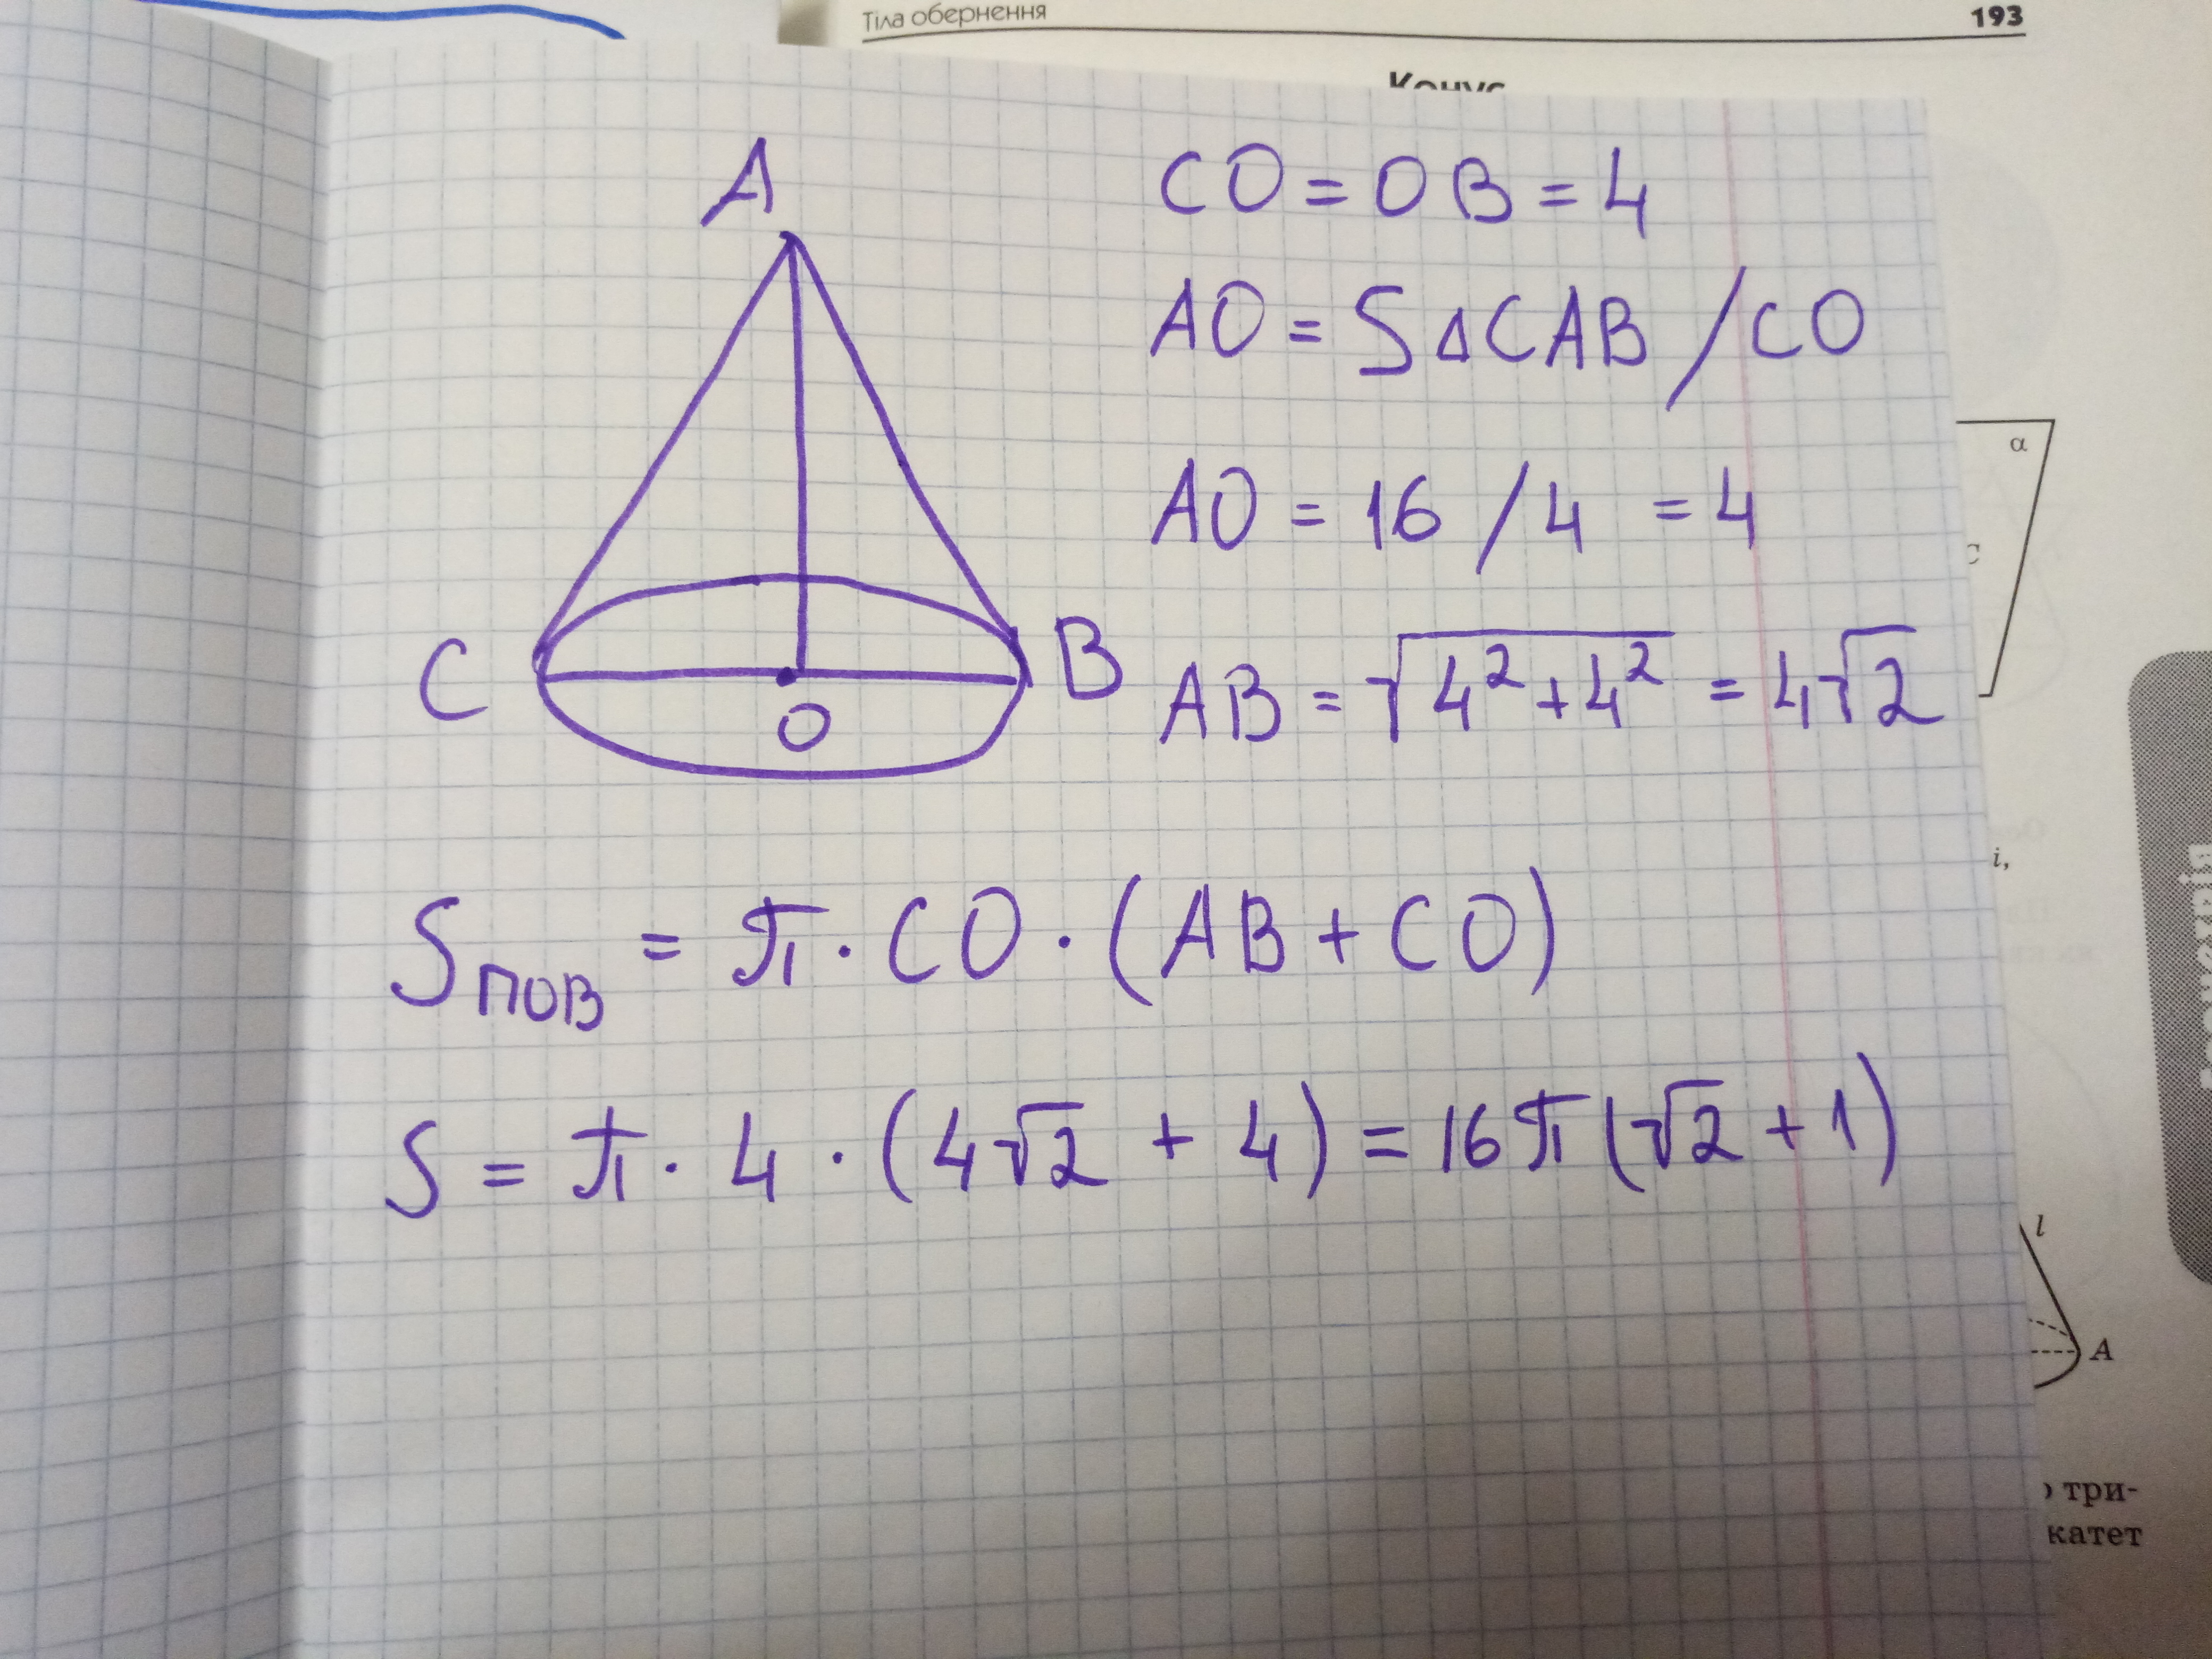 Тіла обернення 193
Конус
A
CO = OB = 4
AO = S△CAB / CO
α
AO = 16 / 4 = 4
C
C O B
AB = √4²+4² = 4√2
і,
Sпов = π · CO · (AB + CO)
S = π · 4 · (4√2 + 4) = 16π(√2 + 1)
l
A
три-
катет